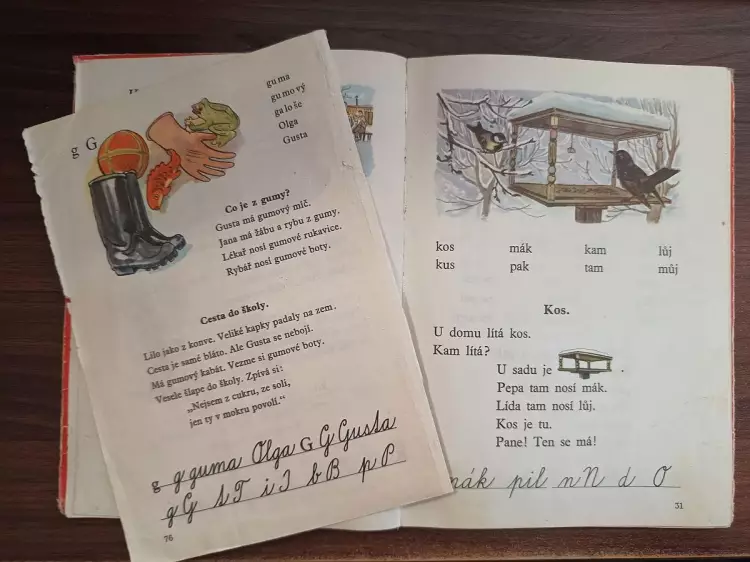 g G
guma
gumový
galoše
Olga
Gusta
Co je z gumy?
Gusta má gumový míč.
Jana má žábu a rybu z gumy.
Lékař nosí gumové rukavice.
Rybář nosí gumové boty.
Cesta do školy.
Lilo jako z konve. Veliké kapky padaly na zem.
Cesta je samé bláto. Ale Gusta se nebojí.
Má gumový kabát. Vezme si gumové boty.
Vesele šlape do školy. Zpívá si:
„Nejsem z cukru, ze soli,
jen ty v mokru povolí.“
g g guma Olga G G Gusta
g G s T i J b B p P
76
kos mák kam lůj
kus pak tam můj
Kos.
U domu lítá kos.
Kam lítá?
U sadu je .
Pepa tam nosí mák.
Lída tam nosí lůj.
Kos je tu.
Pane! Ten se má!
mák pil n N d O
31